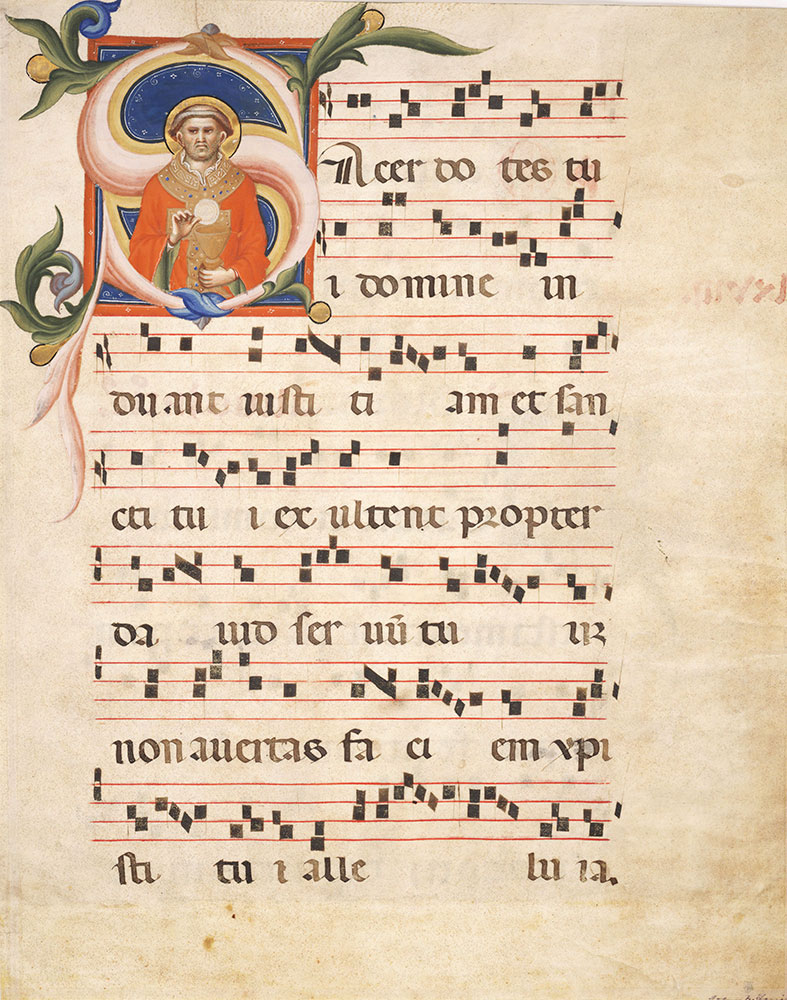 SAcer do tes tu
i domine in
duant iusti ti am et san
cti tu i ex ultent propter
da uid ser uū tu ur
non auertas fa ci em xpi
sti tu i alle lu ia.